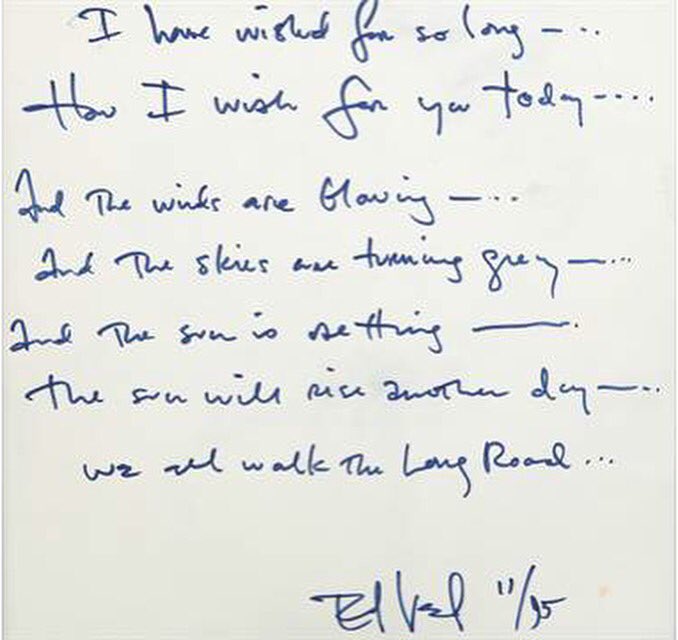 I have wished for so long — ..
How I wish for you today ----....
And The winds are blowing — ...
And The skies are turning grey — ...
And The sun is setting —— .
The sun will rise another day — ...
we all walk the Long Road ...
Ed Ved 11/95